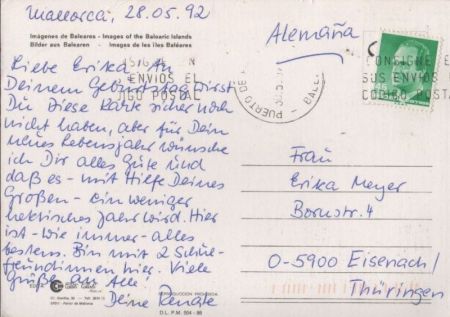 Mallorca, 28.05.92
Imágenes de Baleares - Images of the Balearic Islands
Bilder aus Balearen - Images de les îles Baléares
Alemaña
Liebe Erika! An
Deinem Geburtstag wirst
Du diese Karte sicher noch
nicht haben, aber für Dein
neues Lebensjahr wünsche
ich Dir alles Gute und
daß es - mit Hilfe Deines
Großen - ein weniger
hektisches Jahr wird. Hier
ist - wie immer - alles
bestens. Bin mit 2 Schul-
freundinnen hier. Viele
Grüße an Alle.
Deine Renate
ENVIOS EL
POSTAL
PUERTO DE
CONSIGNE E
SUS ENVIOS
CODIGO POSTA
Frau
Erika Meyer
Bornstr. 4
O-5900 Eisenach/
Thüringen
REPRODUCCION PROHIBIDA
D.L. P.M. 504 - 86